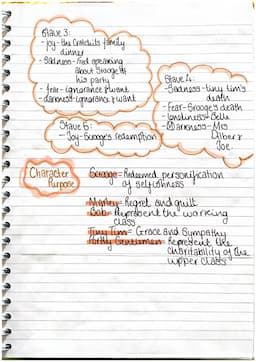 Stave 3:
- Joy - the Cratchits family
dinner
- Sadness - Fred speaking
about Scrooge at
his party
- fear - ignorance & want
- darkness - ignorance & want
Stave 4:
- Sadness - tiny tim's
death
- Fear - Scrooge's death
- loneliness - Belle
- Darkness - Mrs
Dilber &
Joe.
Stave 5:
- Joy - Scrooge's redemption
Character
Purpose
Scrooge = Redeemed personification
of selfishness
Marley = Regret and guilt
Bob = Represent the working
class
Tiny Tim = Grace and Sympathy
Portly Gentlemen = Represent the
charitability of the
upper class